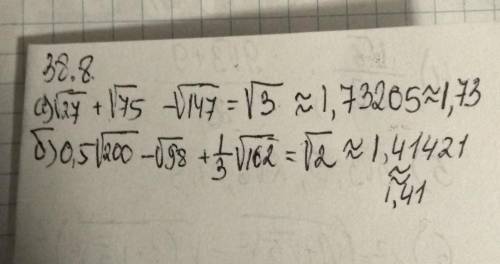 38.8.
а) √27 + √75 - √147 = √3 ≈ 1,73205 ≈ 1,73
б) 0,5√200 - √98 + 1/3 √162 = √2 ≈ 1,41421
≈
1,41